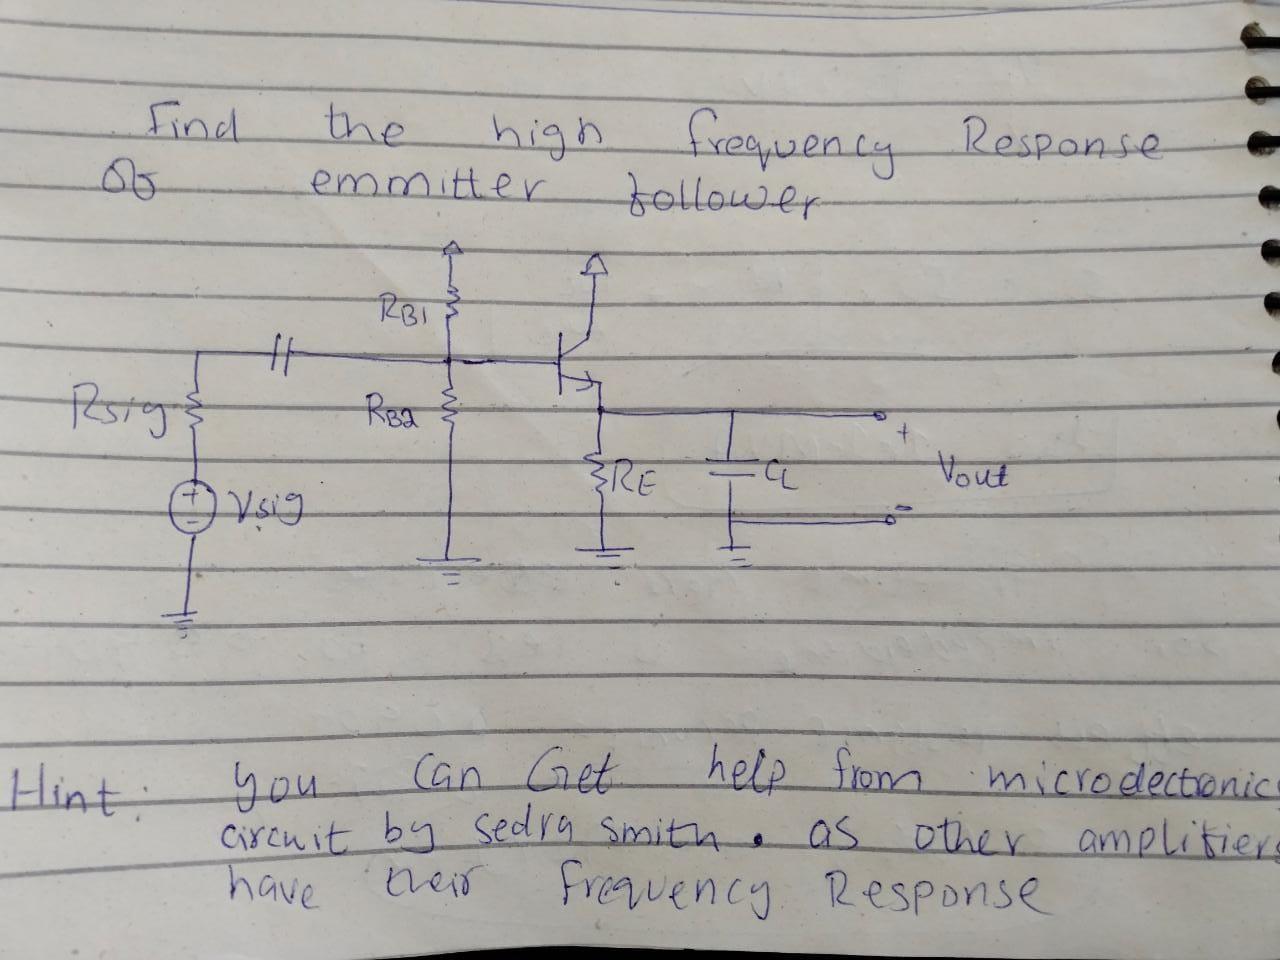 Find the high frequency Response
Of emmitter follower
RB1
Rsig
RB2
RE
CL
+
Vout
-
+
-
Vsig
Hint: you can Get help from microelectronic
circuit by sedra smith. as other amplifiers
have their frequency Response